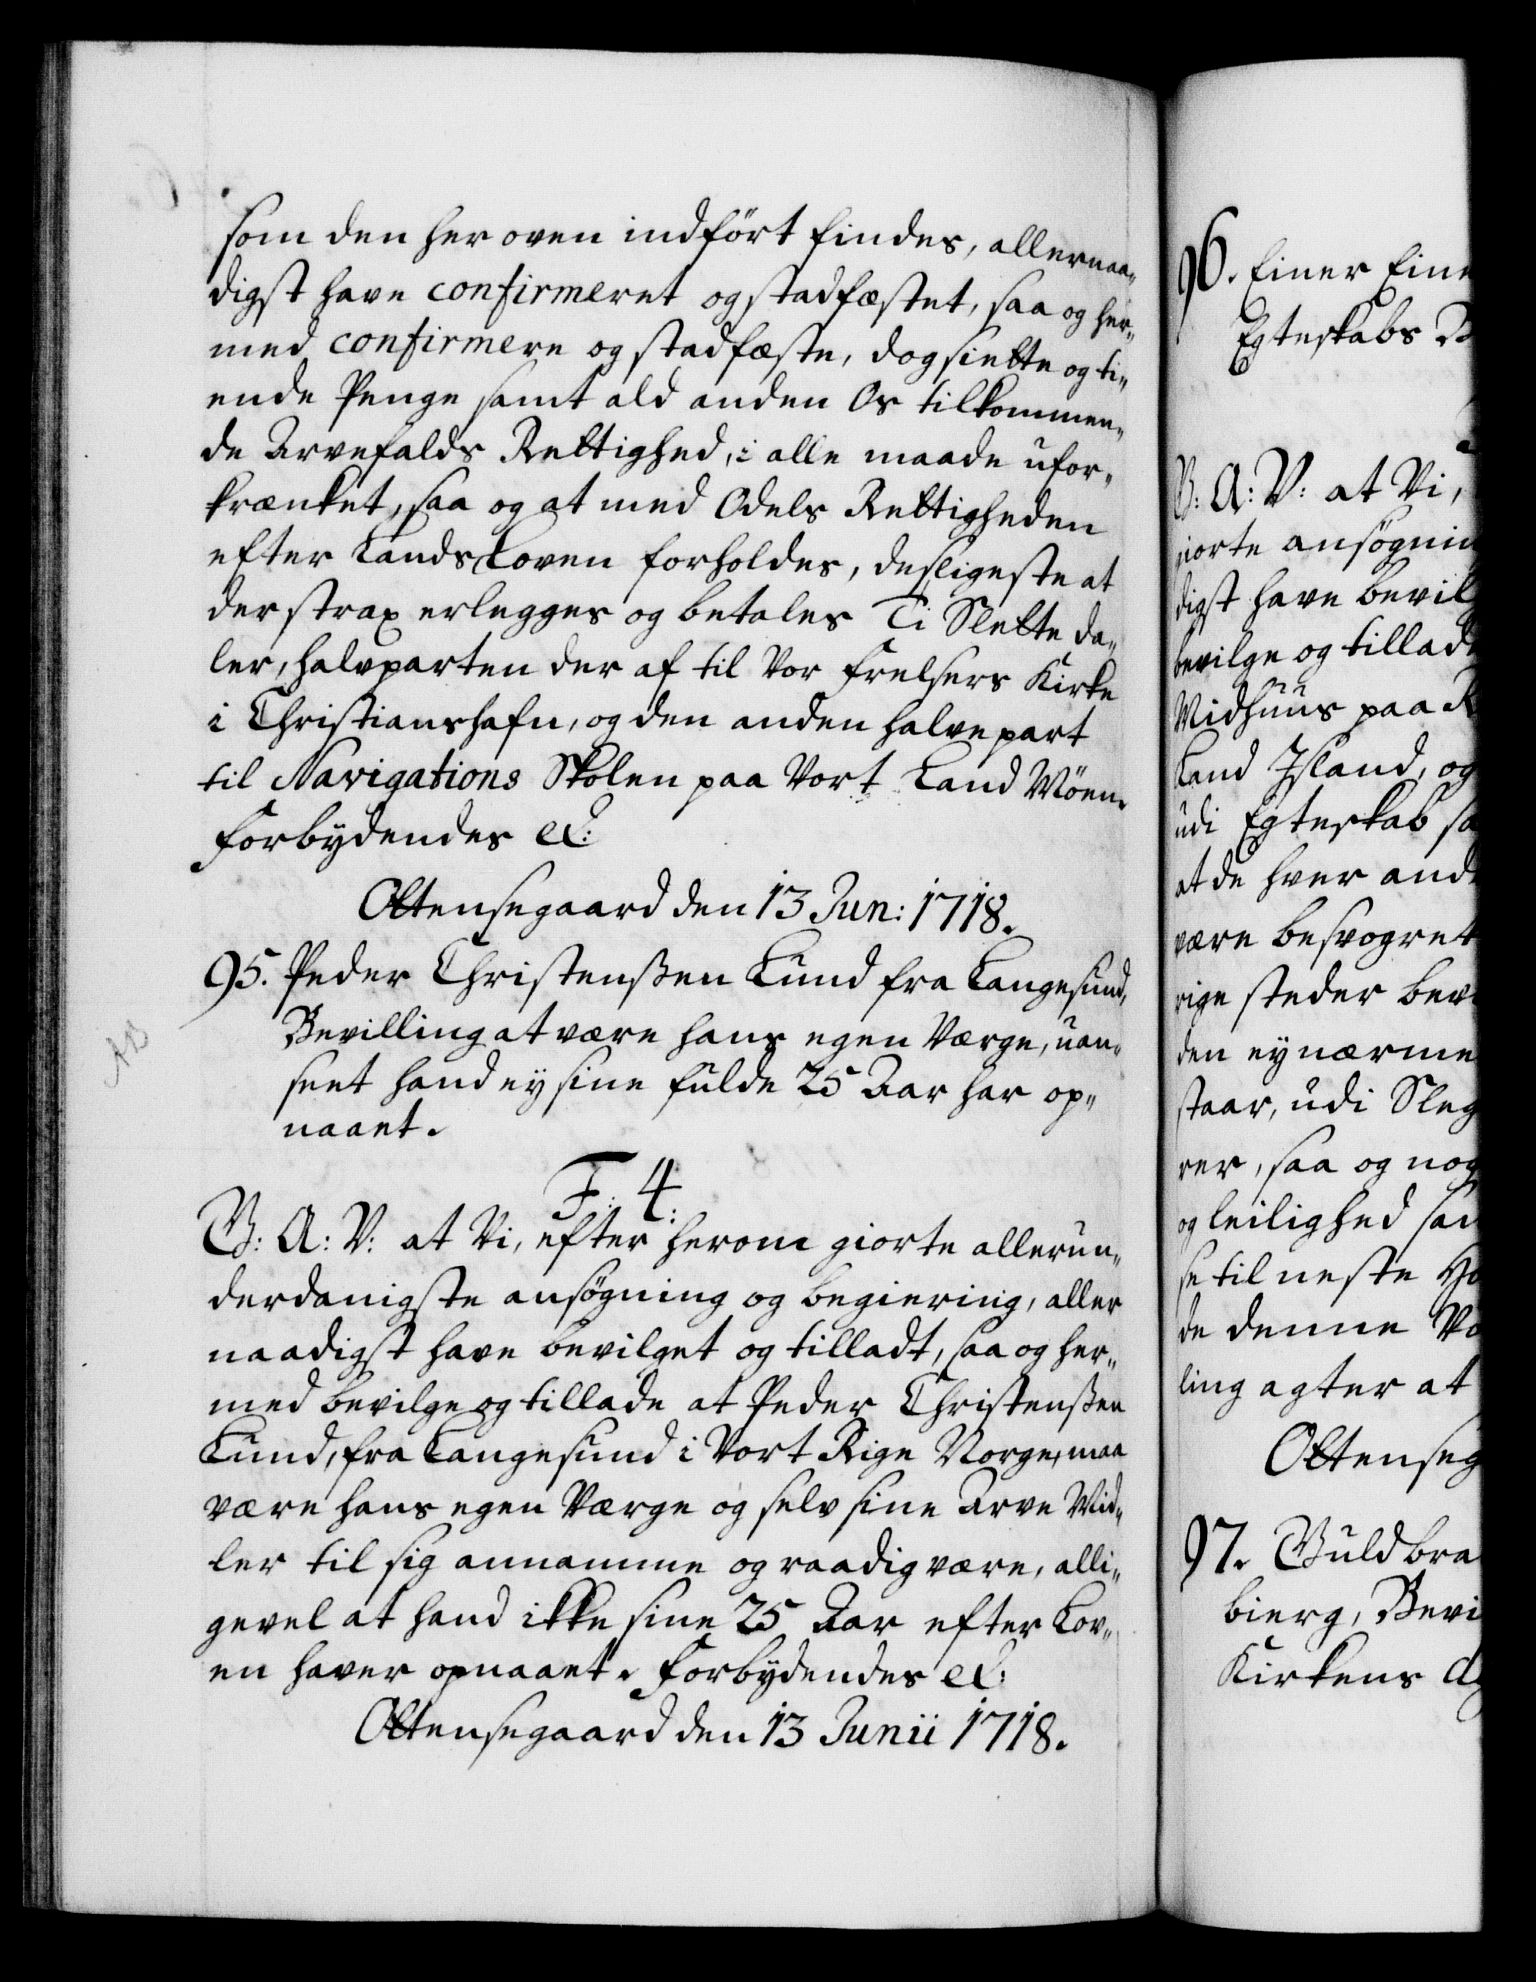 som den her oven indført findes, allernaa„
digst have confirmeret og stadfæstet, saa og her„
med confirmere og stadfæste, dog siette og ti„
ende Penge samt ald anden Os tilkommen„
de Arvefalds Rettighed, i alle maade ufor„
krænket, saa og at med Odels Rettigheden
efter Lands Loven forholdes, desligeste at
der strax erlegges og betales Ti Slette da„
ler, halvparten der af til Vor Frelsers Kirke
i Christianshafn, og den anden halve part
til Navigations Skolen paa Vort Land Møen.
Forbydendes etc:
Ottensegaard den 13 Jun: 1718.
95. Peder Christenßen Lund fra Langesund,
Bevilling at være hans egen Værge, uan„
seet hand ey sine fulde 25 Aar har op„
naaet.
F. 4.
G: A: V: at Vi, efter herom giorte allerun„
derdanigste ansøgning og begiering, aller
naadigst have bevilget og tilladt, saa og her„
med bevilge og tillade at Peder Christenßen
Lund, fra Langesund i Vort Rige Norge, maa
være hans egen Værge og selv sine Arve Mid„
ler til sig annamme og raadig være, alli„
gevel at hand ikke sine 25 Aar efter Lov„
en haver opnaaet. Forbydendes etc:
Ottensegaard den 13 Junii 1718.
96. Einer Eine
Egteskabs B
G: A: V: at Vi,
giorte ansøgnin
digst have bevil
bevilge og tillade
Midhuus paa R
Land Island, og
udi Egteskab sa
at de hver and
være besvogret
rige steder bev
den ey nærme
staar, udi Sleg
rer, saa og nog
og leilighed sa
se til neste Ho
de denne Vo
ling agter at
Ottenseg
97. Guldbra
bierg, Bevi
Kirkens